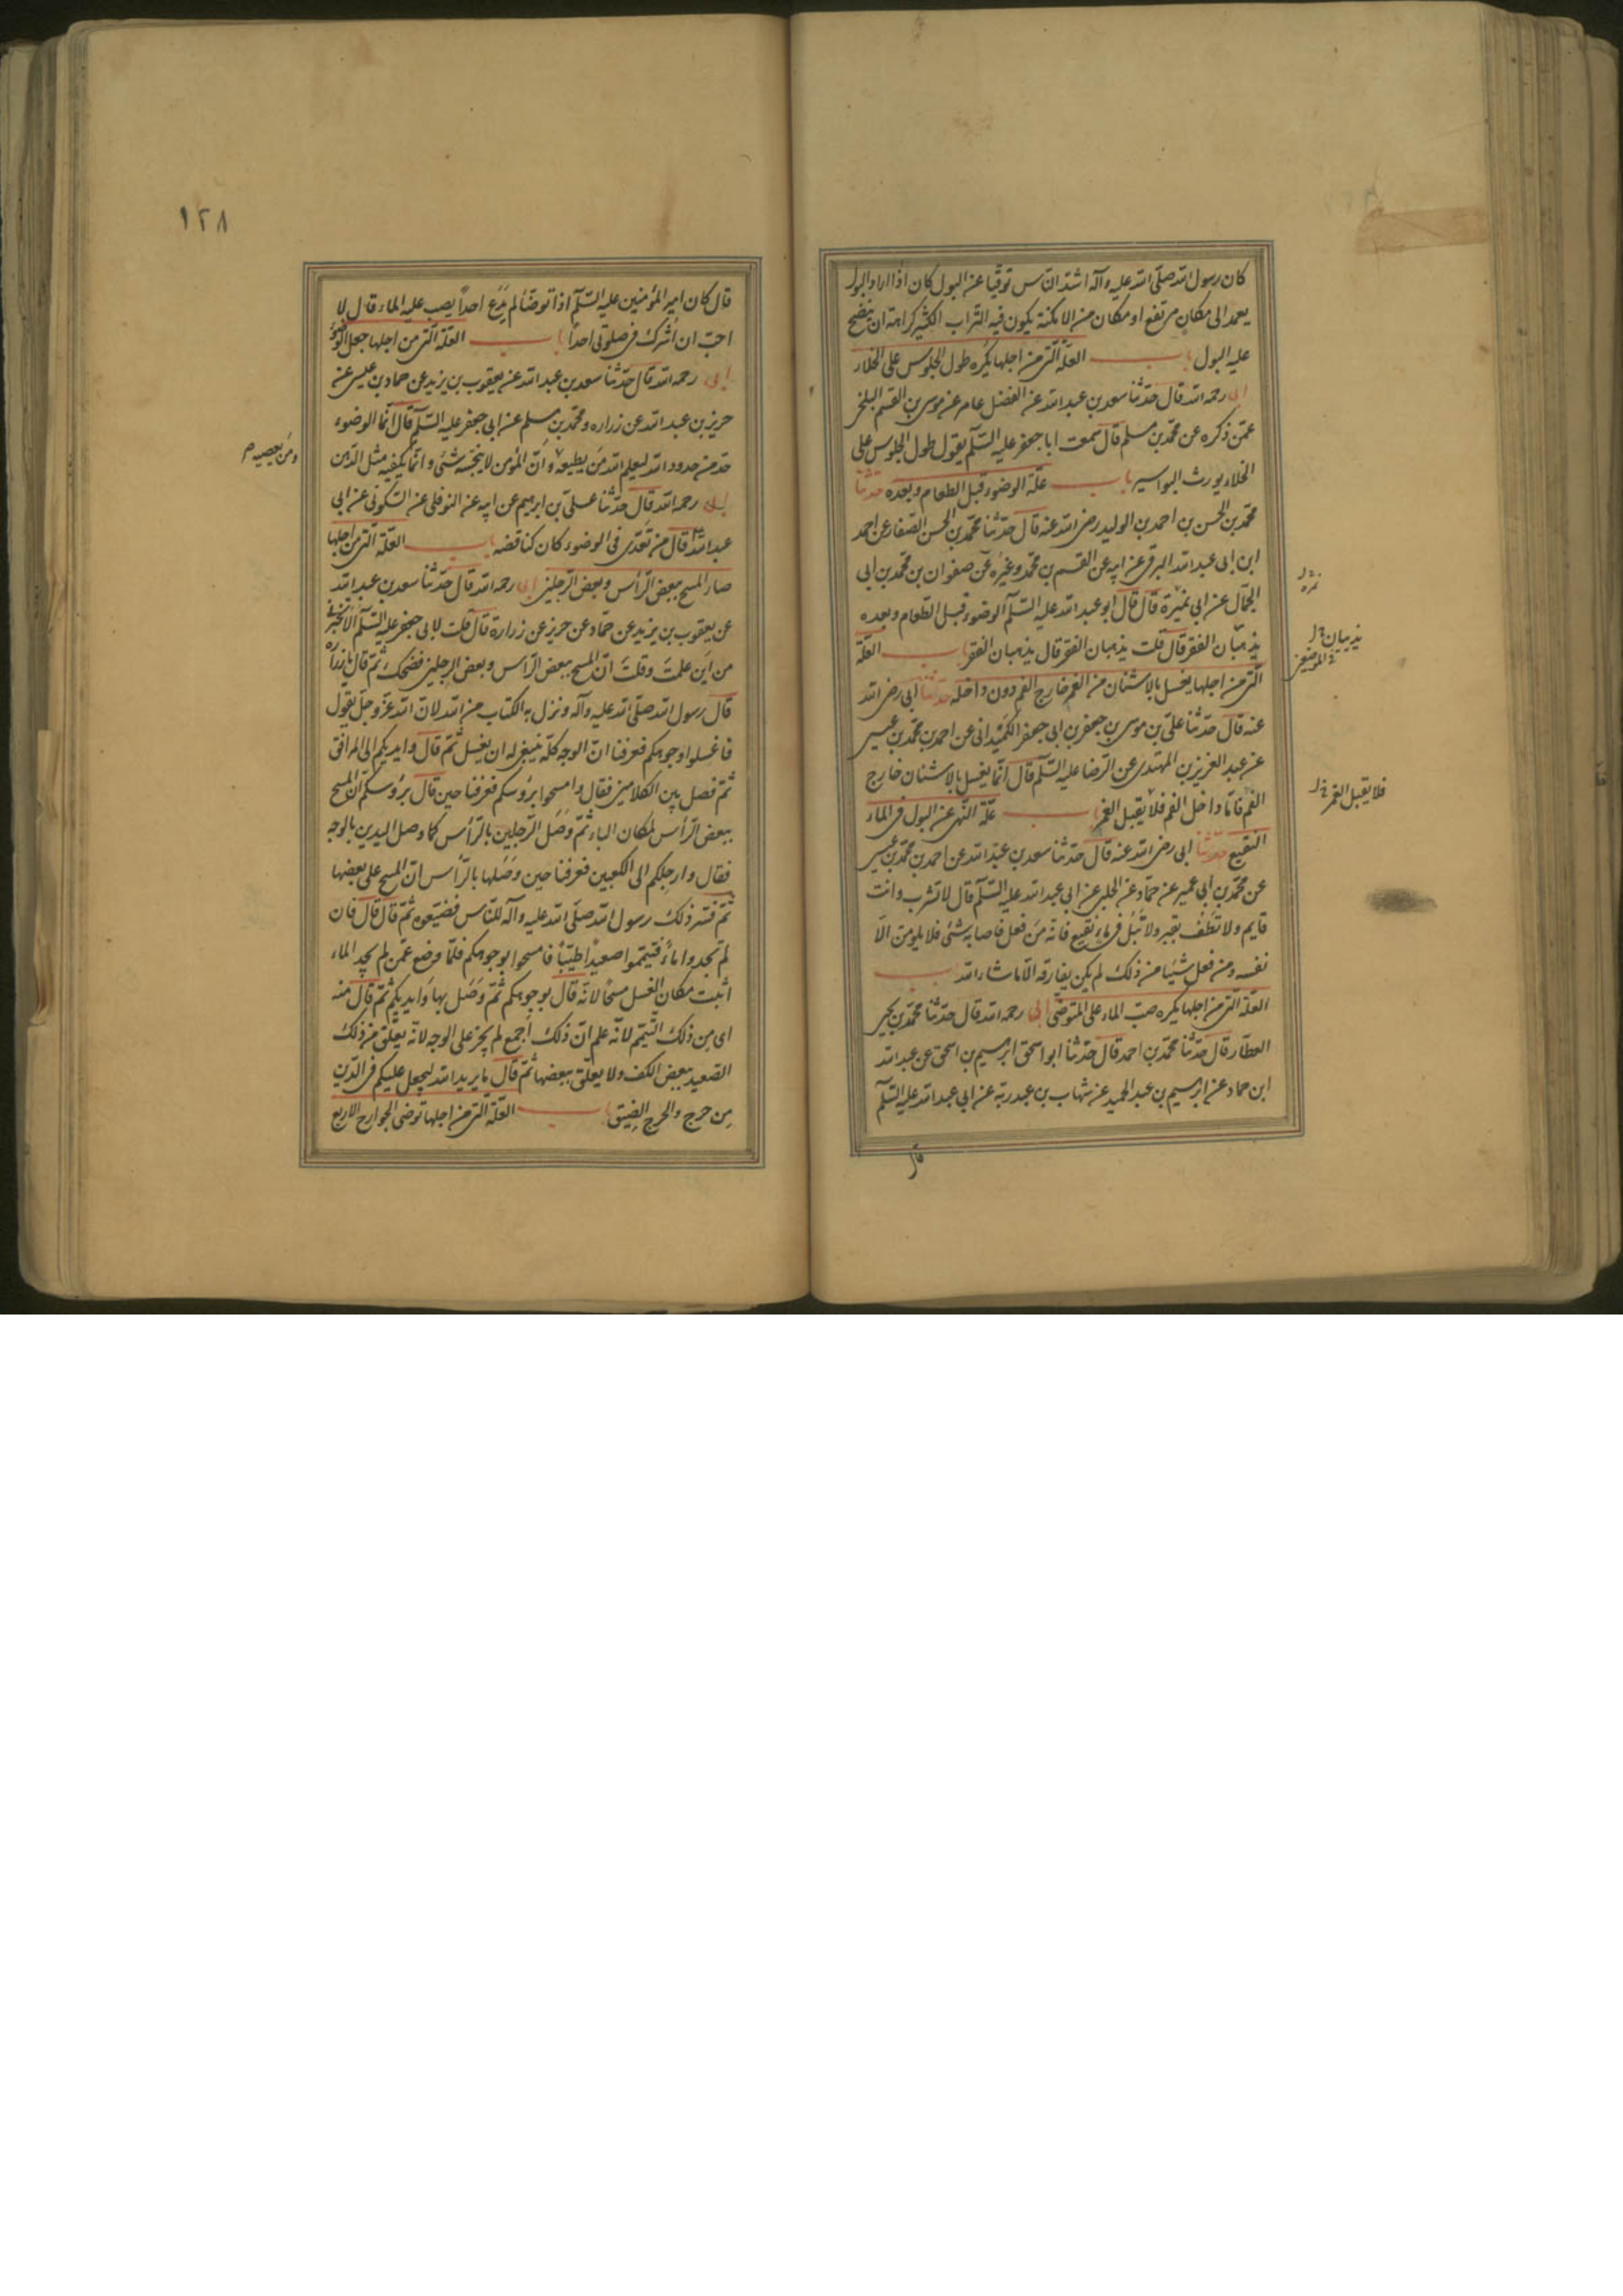 كان رسول الله صلّى الله عليه وآله اشدّ النّاس توقّيا عن البول كان اذا اراد البول
يعمد الى مكان مرتفع او مكان من الامكنة يكون فيه التّراب الكثير كراهة ان ينضح
عليه البول باب العلّة الّتى من اجلها يكره طول الجلوس على الخلاء
ابى رحمه الله قال حدّثنا سعد بن عبد الله عن الفضل عامر عن موسى بن القسم البلخى
عمّن ذكره عن محمّد بن مسلم قال سمعت ابا جعفر عليه السّلم يقول طول الجلوس على
الخلاء يورث البواسير باب علّة الوضوء قبل الطعام وبعده حدّثنا
محمّد بن الحسن بن احمد بن الوليد رضى الله عنه قال حدّثنا محمّد بن الحسن الصّفار عن احمد
ابن ابى عبد الله البرقى عن ابيه عن القسم بن محمّد وغيره عن صفوان بن محمّد بن ابى
الجمّال عن ابى نميرة قال قال ابو عبد الله عليه السّلم الوضوء قبل الطّعام وبعده
يذهبان الفقر قال قلت يذهبان الفقر قال يذهبان الفقر باب العلّة
الّتى من اجلها يغسل بالاشنان من الغمر خارج الفم دون داخله حدّثنا ابى رضى الله
عنه قال حدّثنا علىّ بن موسى بن جعفر بن ابى جعفر الكميدانى عن احمد بن محمّد بن عيسى
عن عبد العزيز بن المهتدى عن الرّضا عليه السّلم قال انّما يغسل بالاشنان خارج
الفم فامّا داخل الفم فلا يقبل الغمر باب علّة النّهى عن البول فى الماء
النقيع حدّثنا ابى رضى الله عنه قال حدّثنا سعد بن عبد الله عن احمد بن محمّد بن عيسى
عن محمّد بن ابى عمير عن حمّاد عن الحلبى عن ابى عبد الله عليه السّلم قال لا تشرب وانت
قايم ولا تطف بقبر ولا تبل فى ماء نقيع فانّه من فعل فاصابه شىء فلا يلومن الّا
نفسه ومن فعل شيئا من ذلك لم يكن يفارقه الّا ما شاء الله باب
العلّة الّتى من اجلها يكره صبّ الماء على المتوضّى ابى رحمه الله قال حدّثنا محمّد بن يحيى
العطّار قال حدّثنا محمّد بن احمد قال حدّثنا ابو اسحق ابرهيم بن اسحق عن عبد الله
ابن حماد عن ابرهيم بن عبد الحميد عن شهاب بن عبد ربّه عن ابى عبد الله عليه السّلم
قال
نمره خ ل
يذيبان خ ل
فى الموضعين
فلا يقبل الغمر خ ل
١٢٨
قال كان امير المؤمنين عليه السّلم اذا توضّأ لم يدع احداً يصب عليه الماء وقال لا
احبّ ان اشرك فى صلوتى احداً باب العلّة الّتى من اجلها جعل الوضوء
ابى رحمه الله قال حدّثنا سعد بن عبد الله عن يعقوب بن يزيد عن حماد بن عيسى عن
حريز بن عبد الله عن زراره ومحمّد بن مسلم عن ابى جعفر عليه السّلم قال انّما الوضوء
حدّ من حدود الله ليعلم الله من يطيعه وانّ المؤمن لا ينجّسه شىء وانّما يكفيه مثل الدّهن
ابى رحمه الله قال حدّثنا علىّ بن ابرهيم عن ابيه عن النوفلى عن السّكونى عن ابى
عبد الله قال من تعدّى فى الوضوء كان كناقضه باب العلّة الّتى من اجلها
صار المسح ببعض الرّأس وبعض الرّجلين ابى رحمه الله قال حدّثنا سعد بن عبد الله
عن يعقوب بن يزيد عن حمّاد عن حريز عن زرارة قال قلت لابى جعفر عليه السّلم الا تخبرنى
من اين علمت وقلت انّ المسح ببعض الرّأس وبعض الرجلين فضحك ثمّ قال يا زراره
قال رسول الله صلّى الله عليه وآله ونزل به الكتاب من الله لانّ الله عزّ وجلّ يقول
فاغسلوا وجوهكم فعرفنا انّ الوجه كلّه ينبغى له ان يغسل ثمّ قال وايديكم الى المرافق
ثمّ فصل بين الكلامين فقال وامسحوا برؤسكم فعرفنا حين قال برؤسكم انّ المسح
ببعض الرّأس لمكان الباء ثمّ وصل الرّجلين بالرّأس كما وصل اليدين بالوجه
فقال وارجلكم الى الكعبين فعرفنا حين وصلها بالرّأس انّ المسح على بعضها
ثمّ فسّر ذلك رسول الله صلّى الله عليه وآله للنّاس فضيّعوه ثمّ قال قال فان
لم تجدوا ماءً فتيمّموا صعيداً طيّباً فامسحوا بوجوهكم فلمّا وضع عمّن لم يجد الماء
اثبت مكان الغسل مسحاً لانّه قال بوجوهكم ثمّ وصل بها وايديكم ثمّ قال منه
اى من ذلك التّيمّم لانّه علم انّ ذلك اجمع لم يجر على الوجه لانّه يعلّق من ذلك
الصّعيد ببعض الكف ولا يعلّق ببعضها ثمّ قال ما يريد الله ليجعل عليكم فى الدّين
من حرج والحرج الضيق باب العلّة الّتى من اجلها توضى الجوارح الاربع
ومن يعصيه م